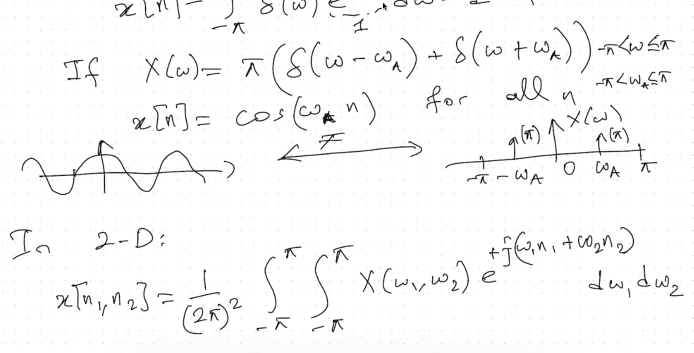 x[n] = ∫_{-π} δ(ω) e
1
If X(ω) = π(δ(ω − ω_A) + δ(ω + ω_A)) −π<ω≤π
−π<ω_A≤π
x[n] = cos(ω_A n) for all n
F
X(ω)
(π) (π)
−π −ω_A 0 ω_A π
In 2-D:
x[n₁, n₂] = 1/(2π)² ∫_{-π}^{π} ∫_{-π}^{π} X(ω₁, ω₂) e^{+j(ω₁n₁ + ω₂n₂)} dω₁ dω₂